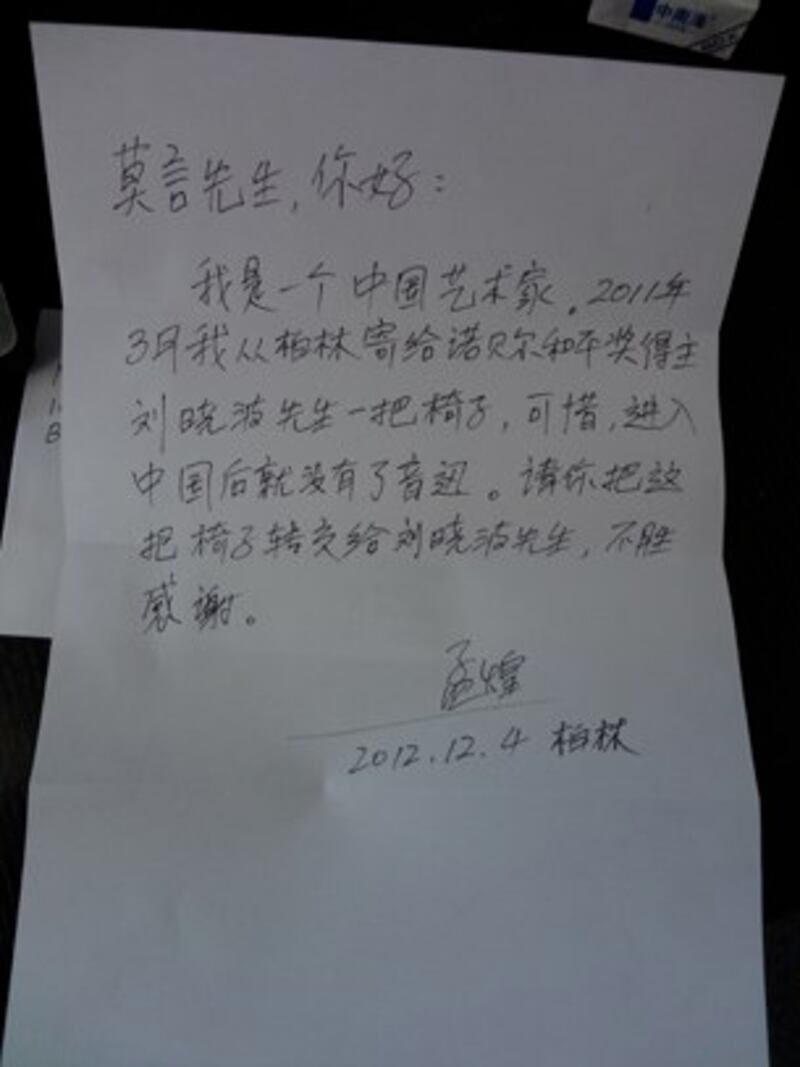 中南海
莫言先生，你好：
我是一个中国艺术家。2011年
3月我从柏林寄给诺贝尔和平奖得主
刘晓波先生一把椅子，可惜，进入
中国后就没有了音迅。请你把这
把椅子转交给刘晓波先生，不胜
感谢。
孟煌
2012.12.4 柏林